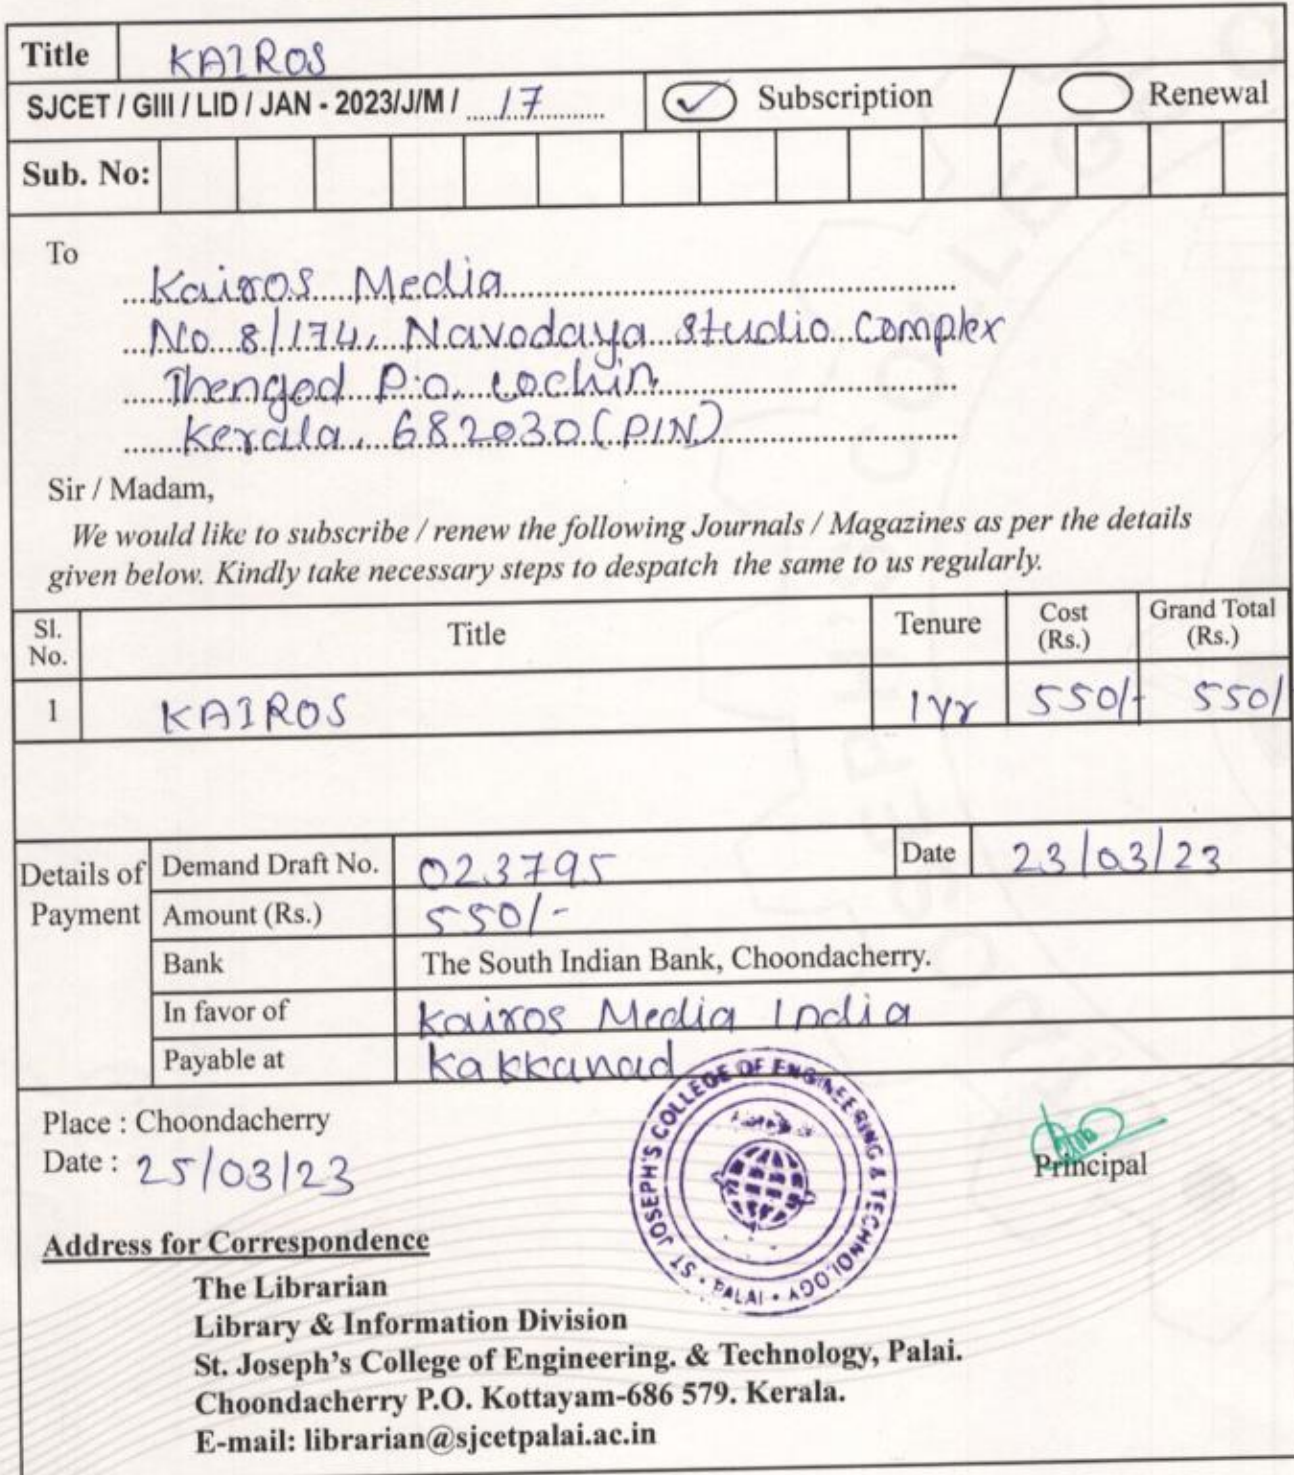 Title KAIROS
SJCET / GIII / LID / JAN - 2023/J/M / 17 Subscription / Renewal
Sub. No:
To
Kairos Media
No 8/174, Navodaya Studio Complex
Thengod P.O. Cochin,
Kerala, 682030 (PIN)
Sir / Madam,
We would like to subscribe / renew the following Journals / Magazines as per the details
given below. Kindly take necessary steps to despatch the same to us regularly.
Sl. No. Title Tenure Cost (Rs.) Grand Total (Rs.)
1 KAIROS 1 yr 550/- 550/
Details of Payment
Demand Draft No. 023795 Date 23/03/23
Amount (Rs.) 550/-
Bank The South Indian Bank, Choondacherry.
In favor of Kairos Media India
Payable at Kakkanad
Place : Choondacherry
Date : 25/03/23
ST JOSEPH'S COLLEGE OF ENGINEERING & TECHNOLOGY • PALAI •
Principal
Address for Correspondence
The Librarian
Library & Information Division
St. Joseph's College of Engineering. & Technology, Palai.
Choondacherry P.O. Kottayam-686 579. Kerala.
E-mail: librarian@sjcetpalai.ac.in